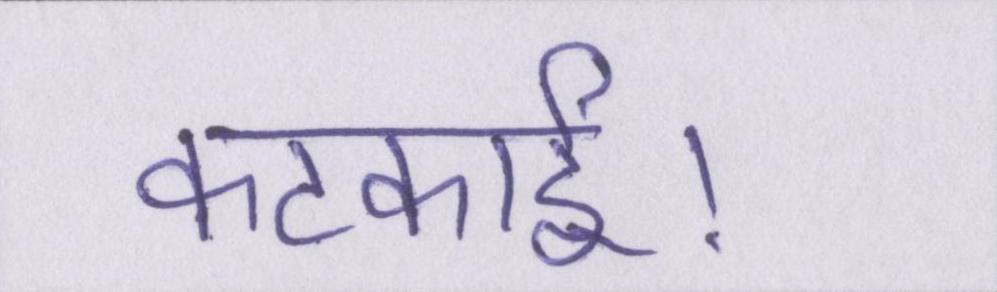 कटकाई!